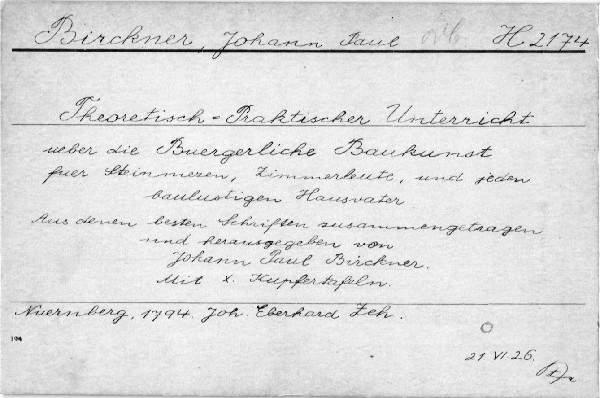 Birckner, Johann Paul H 2174
Theoretisch=Praktischer Unterricht
ueber die Buergerliche Baukunst
fuer Steinmezen, Zimmerleute, und jeden
baulustigen Hausvater
Aus denen besten Schriften zusammengetragen
und herausgegeben von
Johann Paul Birckner.
Mit X. Kupfertafeln.
Nuernberg, 1794. Joh. Eberhard Zeh.
104
21 VI. 26.